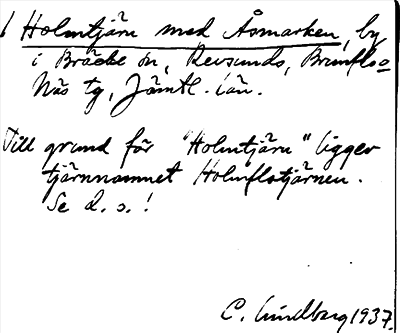 1 Holmtjärn med Åsmarken, by
i Bräcke sn, Revsunds, Brunflo o
Näs tg, Jämtl. län.
Till grund för "Holmtjärn" ligger
tjärnnamnet Holmflotjärnen.
Se d. o.!
C. Lindberg 1937.